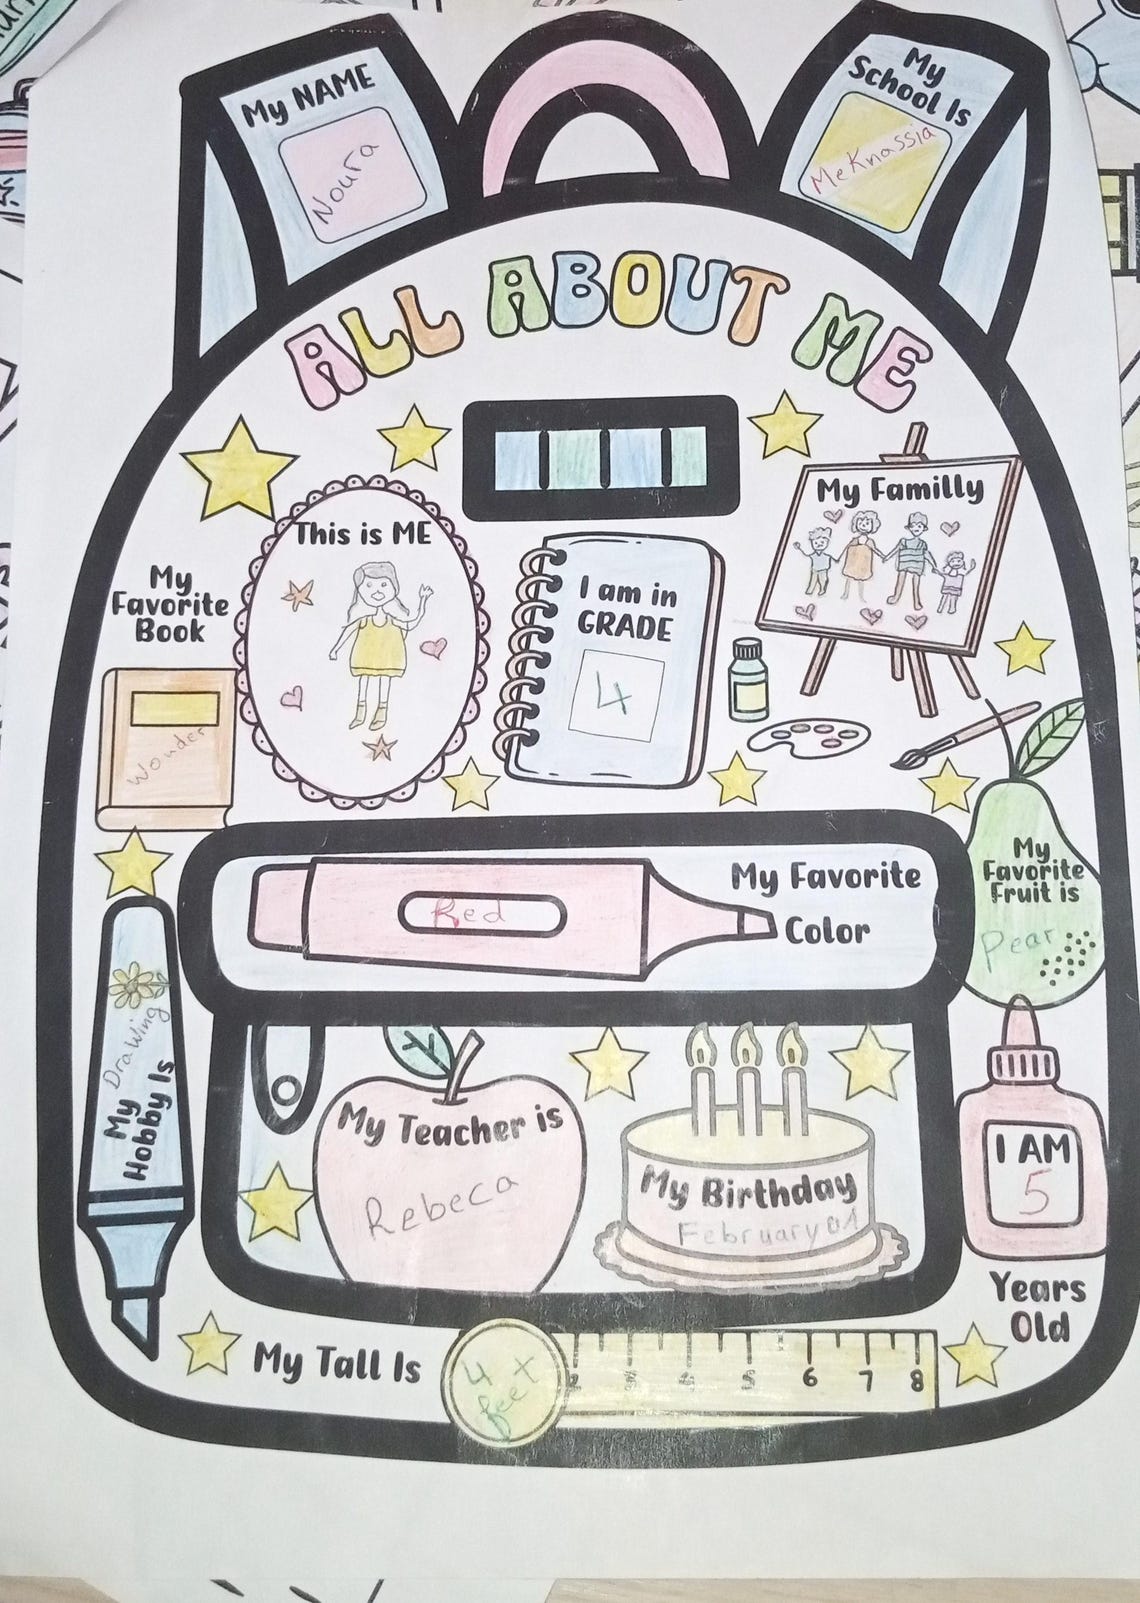 My NAME
Noura
My
School Is
Meknassia
ALL ABOUT ME
This is ME
My
Favorite
Book
Wonder
I am in
GRADE
4
My Familly
My Favorite
Color
Red
My
Favorite
Fruit is
Pear
My
Hobby Is
Drawing
My Teacher is
Rebeca
My Birthday
February 01
I AM
5
Years
Old
My Tall Is
4
feet
2 3 4 5 6 7 8